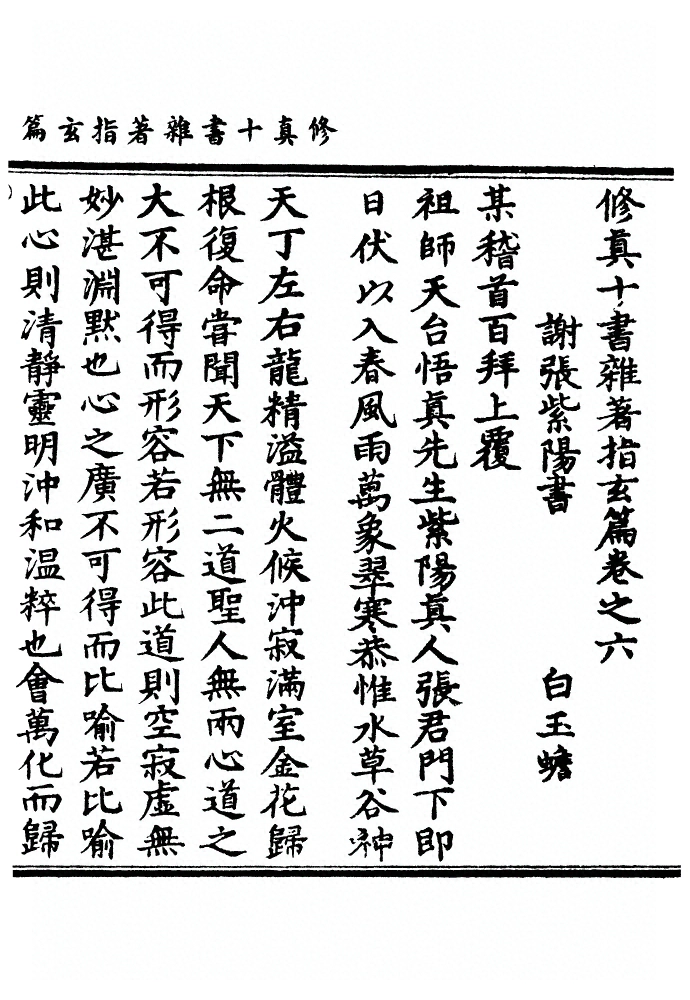 修真十書雜著指玄篇
修真十書雜著指玄篇卷之六
謝張紫陽書　白玉蟾
某稽首百拜上覆
祖師天台悟真先生紫陽真人張君門下即
日伏以入春風雨萬象翠寒恭惟水草谷神
天丁左右龍精溢體火候沖寂滿室金花歸
根復命嘗聞天下無二道聖人無兩心道之
大不可得而形容若形容此道則空寂虛無
妙湛淵默也心之廣不可得而比喻若比喻
此心則清靜靈明沖和温粹也會萬化而歸